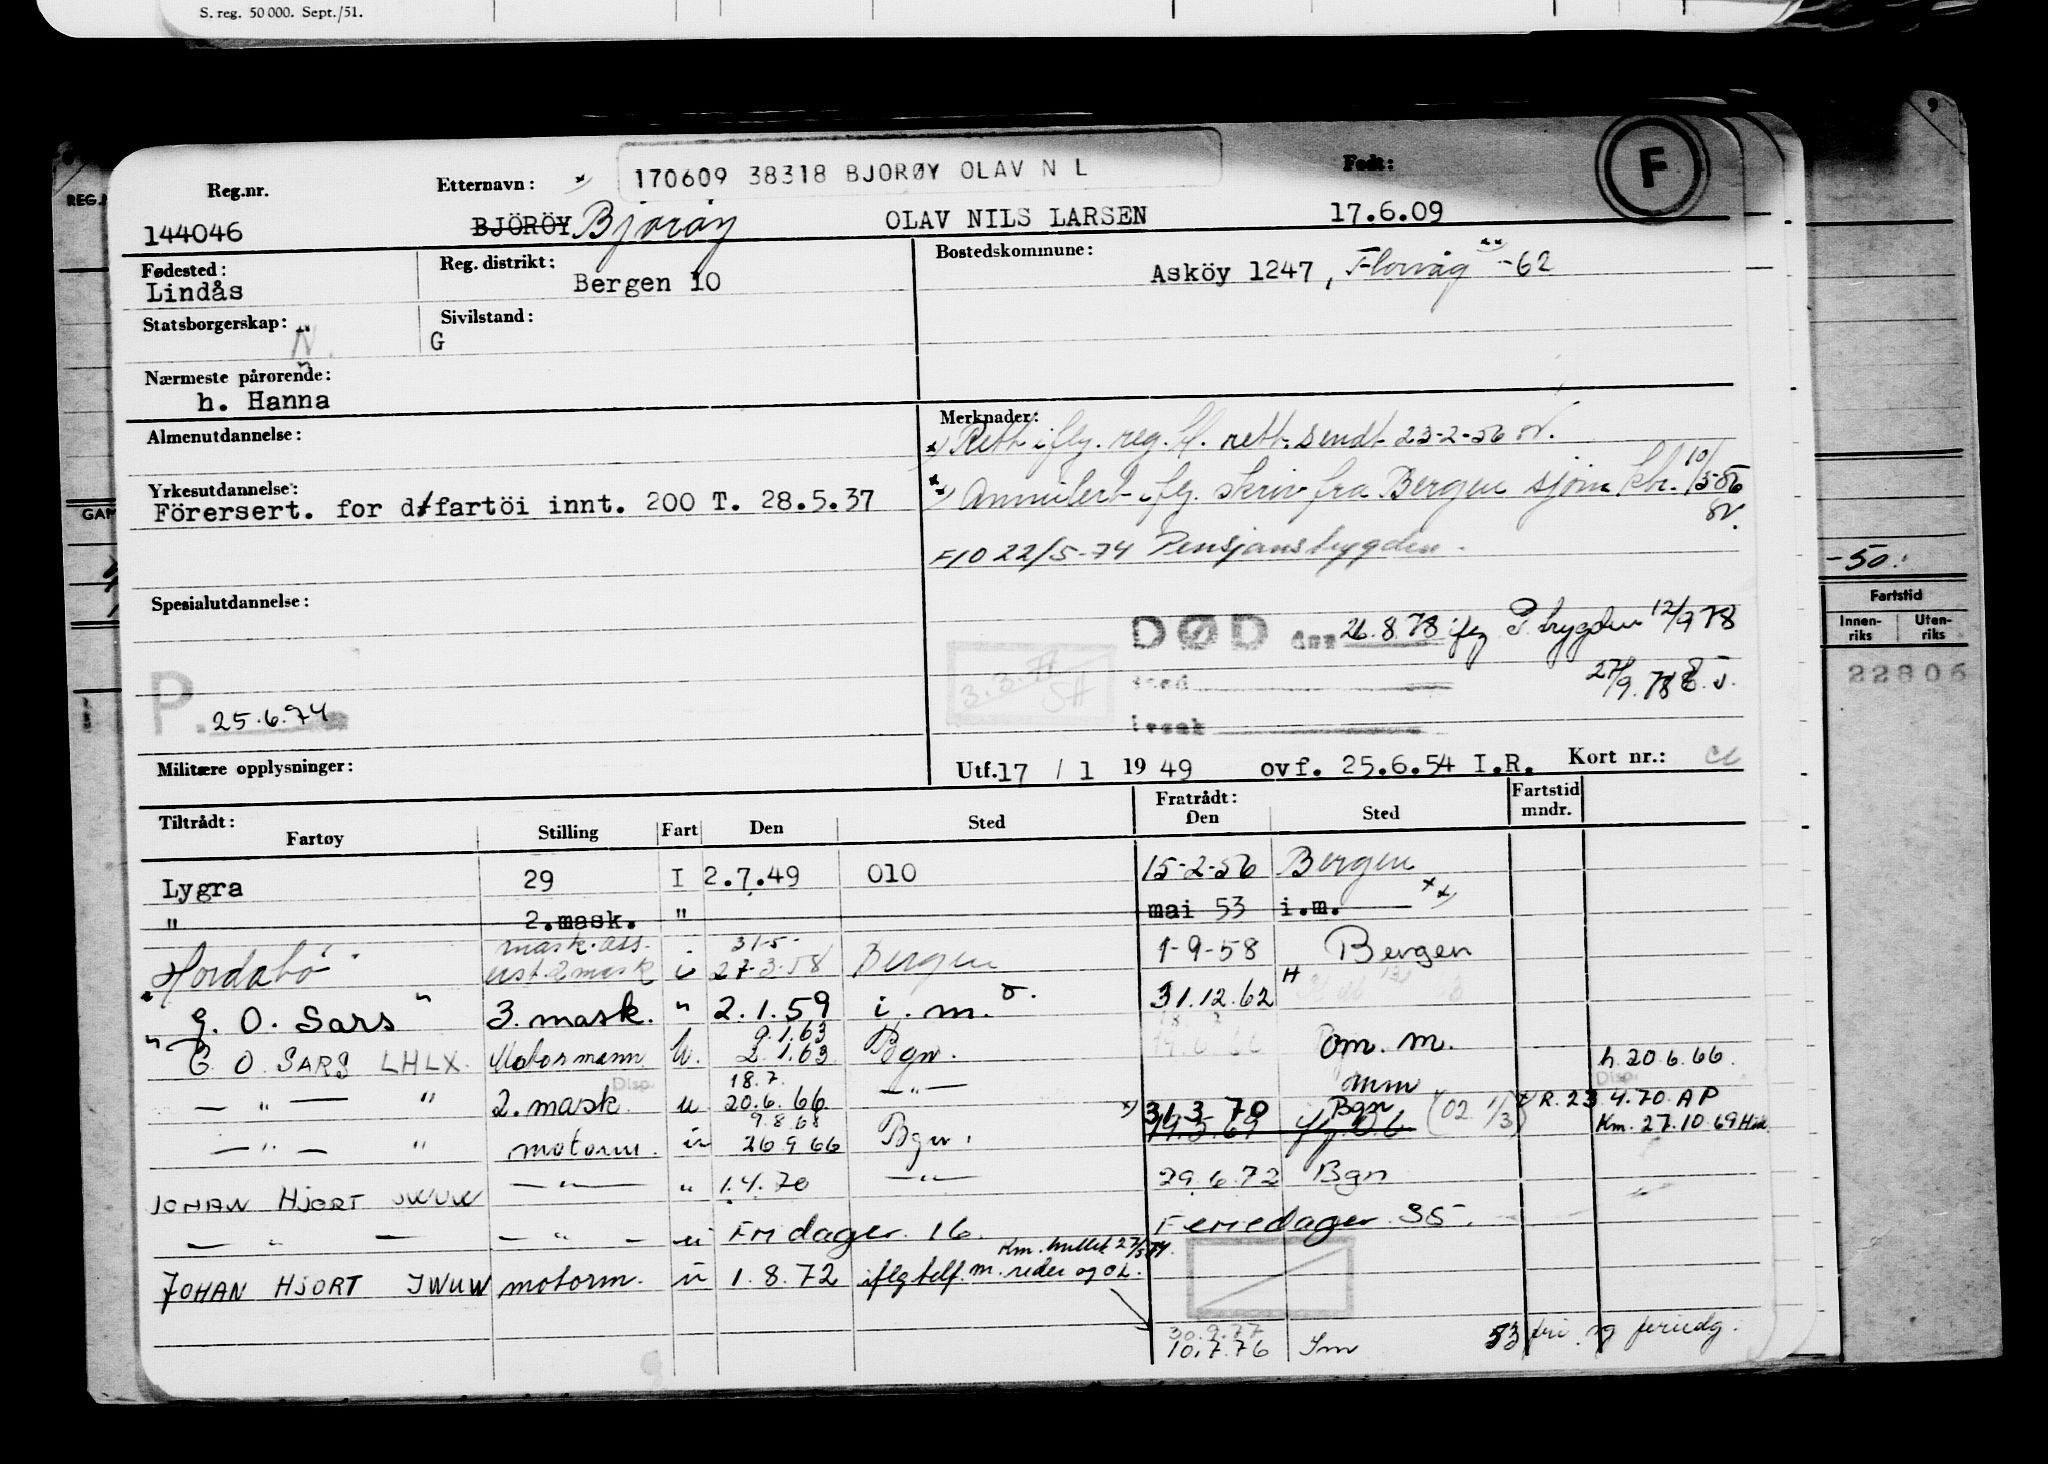 S. reg. 50 000. Sept./51.
170609 38318 BJORØY OLAV N L
Reg.nr. Etternavn: Født: F
144046 BJÖRÖY Bjorøy OLAV NILS LARSEN 17.6.09
Fødested: Reg. distrikt: Bostedskommune:
Lindås Bergen 10 Asköy 1247, Florvåg -62
Statsborgerskap: N. Sivilstand:
G
Nærmeste pårørende:
h. Hanna
Almenutdannelse: Merknader:
x) Rett iflg. reg. bl. rett. sendt 23-2-56
Yrkesutdannelse: Annulert iflg. skriv fra Bergen sjøm. 10/5-56
Förersert. for d/fartöi innt. 200 T. 28.5.37
F/O 22/5-74 Pensjonstrygden.
Spesialutdannelse:
DØD den 26.8.78 iflg P.trygden 12/9 78
sted 27/9.78
P. 25.6.74
årsak
Militære opplysninger: Utf. 17 / 1 19 49 ovf. 25.6.54 I.R. Kort nr.:
Tiltrådt: Fratrådt: Fartstid
Fartøy Stilling Fart Den Sted Den Sted mndr.
Lygra 29 I 2.7.49 010 15-2-56 Bergen
" 2.mask. " mai 53 i.m. xx)
mask.ass. 31-5-
Hordabø 2 mask i 27-3-58 Bergen 1-9-58 Bergen
"G. O. Sars" 3. mask. " 2.1.59 i. m. 31.12.62
9.1.63
"G. O. SARS LHLX. Motormann u. 2.1.63 Bgn. Om. m. h. 20.6.66.
Disp. 18.7. mm Disp.
— " — " 2. mask. u 20.6.66 — " — x) 31.3 70 Bgn (02 1/3) R. 23 4.70. AP
9.8.68
— " — " motorm. u 26 9 66 Bgn. 19.3.69 Km. 27.10.69
JOHAN HJORT JWUW — " — " 1.4.70 — " — 29.6.72 Bgn
— " — — " — u Fridager 16. Feriedager 35.
Km. hullet 27/5 74.
JOHAN HJORT JWUW motorm. u 1.8.72 iflg telf. m. reder og OL.
30.9.77
10.7.76 Sm 53 fri og feriedg.
REG.
GAM
-50.
Fartstid
Innen-riks Uten-riks
22806